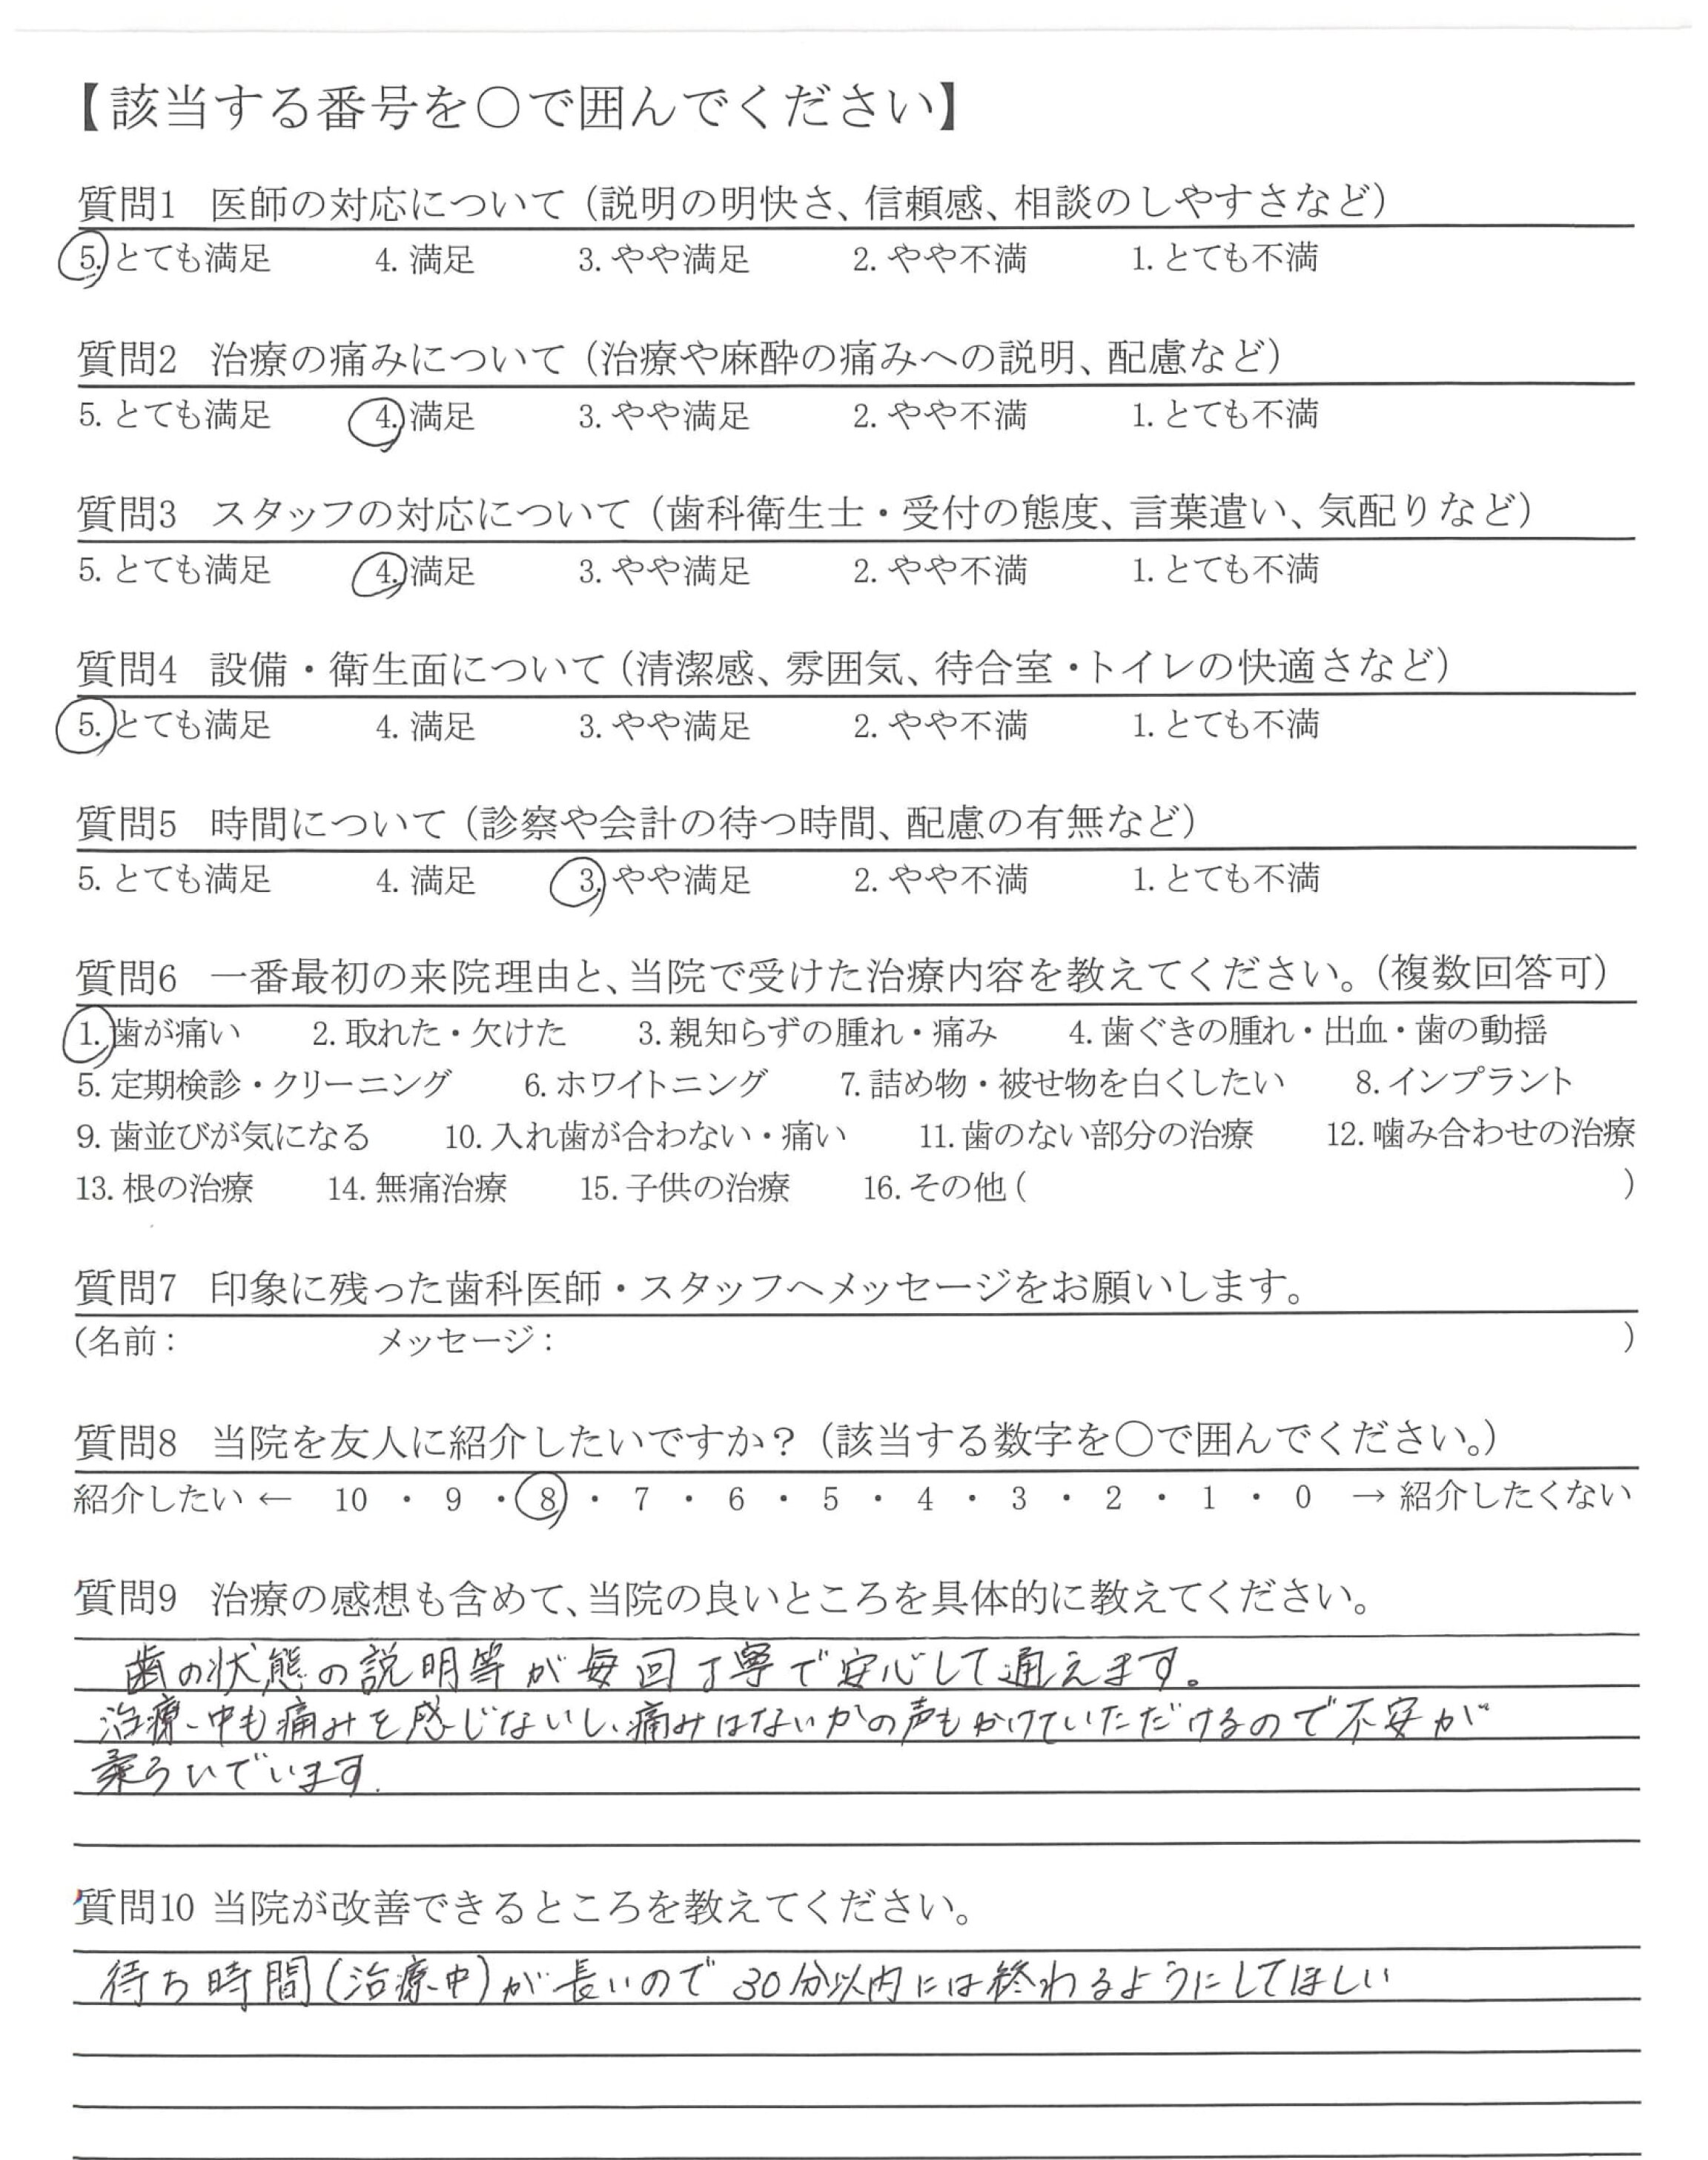 【該当する番号を〇で囲んでください】
質問1 医師の対応について（説明の明快さ、信頼感、相談のしやすさなど）
5. とても満足 4. 満足 3. やや満足 2. やや不満 1. とても不満
質問2 治療の痛みについて（治療や麻酔の痛みへの説明、配慮など）
5. とても満足 4. 満足 3. やや満足 2. やや不満 1. とても不満
質問3 スタッフの対応について（歯科衛生士・受付の態度、言葉遣い、気配りなど）
5. とても満足 4. 満足 3. やや満足 2. やや不満 1. とても不満
質問4 設備・衛生面について（清潔感、雰囲気、待合室・トイレの快適さなど）
5. とても満足 4. 満足 3. やや満足 2. やや不満 1. とても不満
質問5 時間について（診察や会計の待つ時間、配慮の有無など）
5. とても満足 4. 満足 3. やや満足 2. やや不満 1. とても不満
質問6 一番最初の来院理由と、当院で受けた治療内容を教えてください。（複数回答可）
1. 歯が痛い 2. 取れた・欠けた 3. 親知らずの腫れ・痛み 4. 歯ぐきの腫れ・出血・歯の動揺
5. 定期検診・クリーニング 6. ホワイトニング 7. 詰め物・被せ物を白くしたい 8. インプラント
9. 歯並びが気になる 10. 入れ歯が合わない・痛い 11. 歯のない部分の治療 12. 噛み合わせの治療
13. 根の治療 14. 無痛治療 15. 子供の治療 16. その他（ ）
質問7 印象に残った歯科医師・スタッフへメッセージをお願いします。
（名前： メッセージ： ）
質問8 当院を友人に紹介したいですか？（該当する数字を〇で囲んでください。）
紹介したい ← 10 ・ 9 ・ 8 ・ 7 ・ 6 ・ 5 ・ 4 ・ 3 ・ 2 ・ 1 ・ 0 → 紹介したくない
質問9 治療の感想も含めて、当院の良いところを具体的に教えてください。
歯の状態の説明等が毎回丁寧で安心して通えます。
治療中も痛みを感じないし、痛みはないかの声もかけていただけるので不安が
柔らいでいます。
質問10 当院が改善できるところを教えてください。
待ち時間(治療中)が長いので30分以内には終わるようにしてほしい